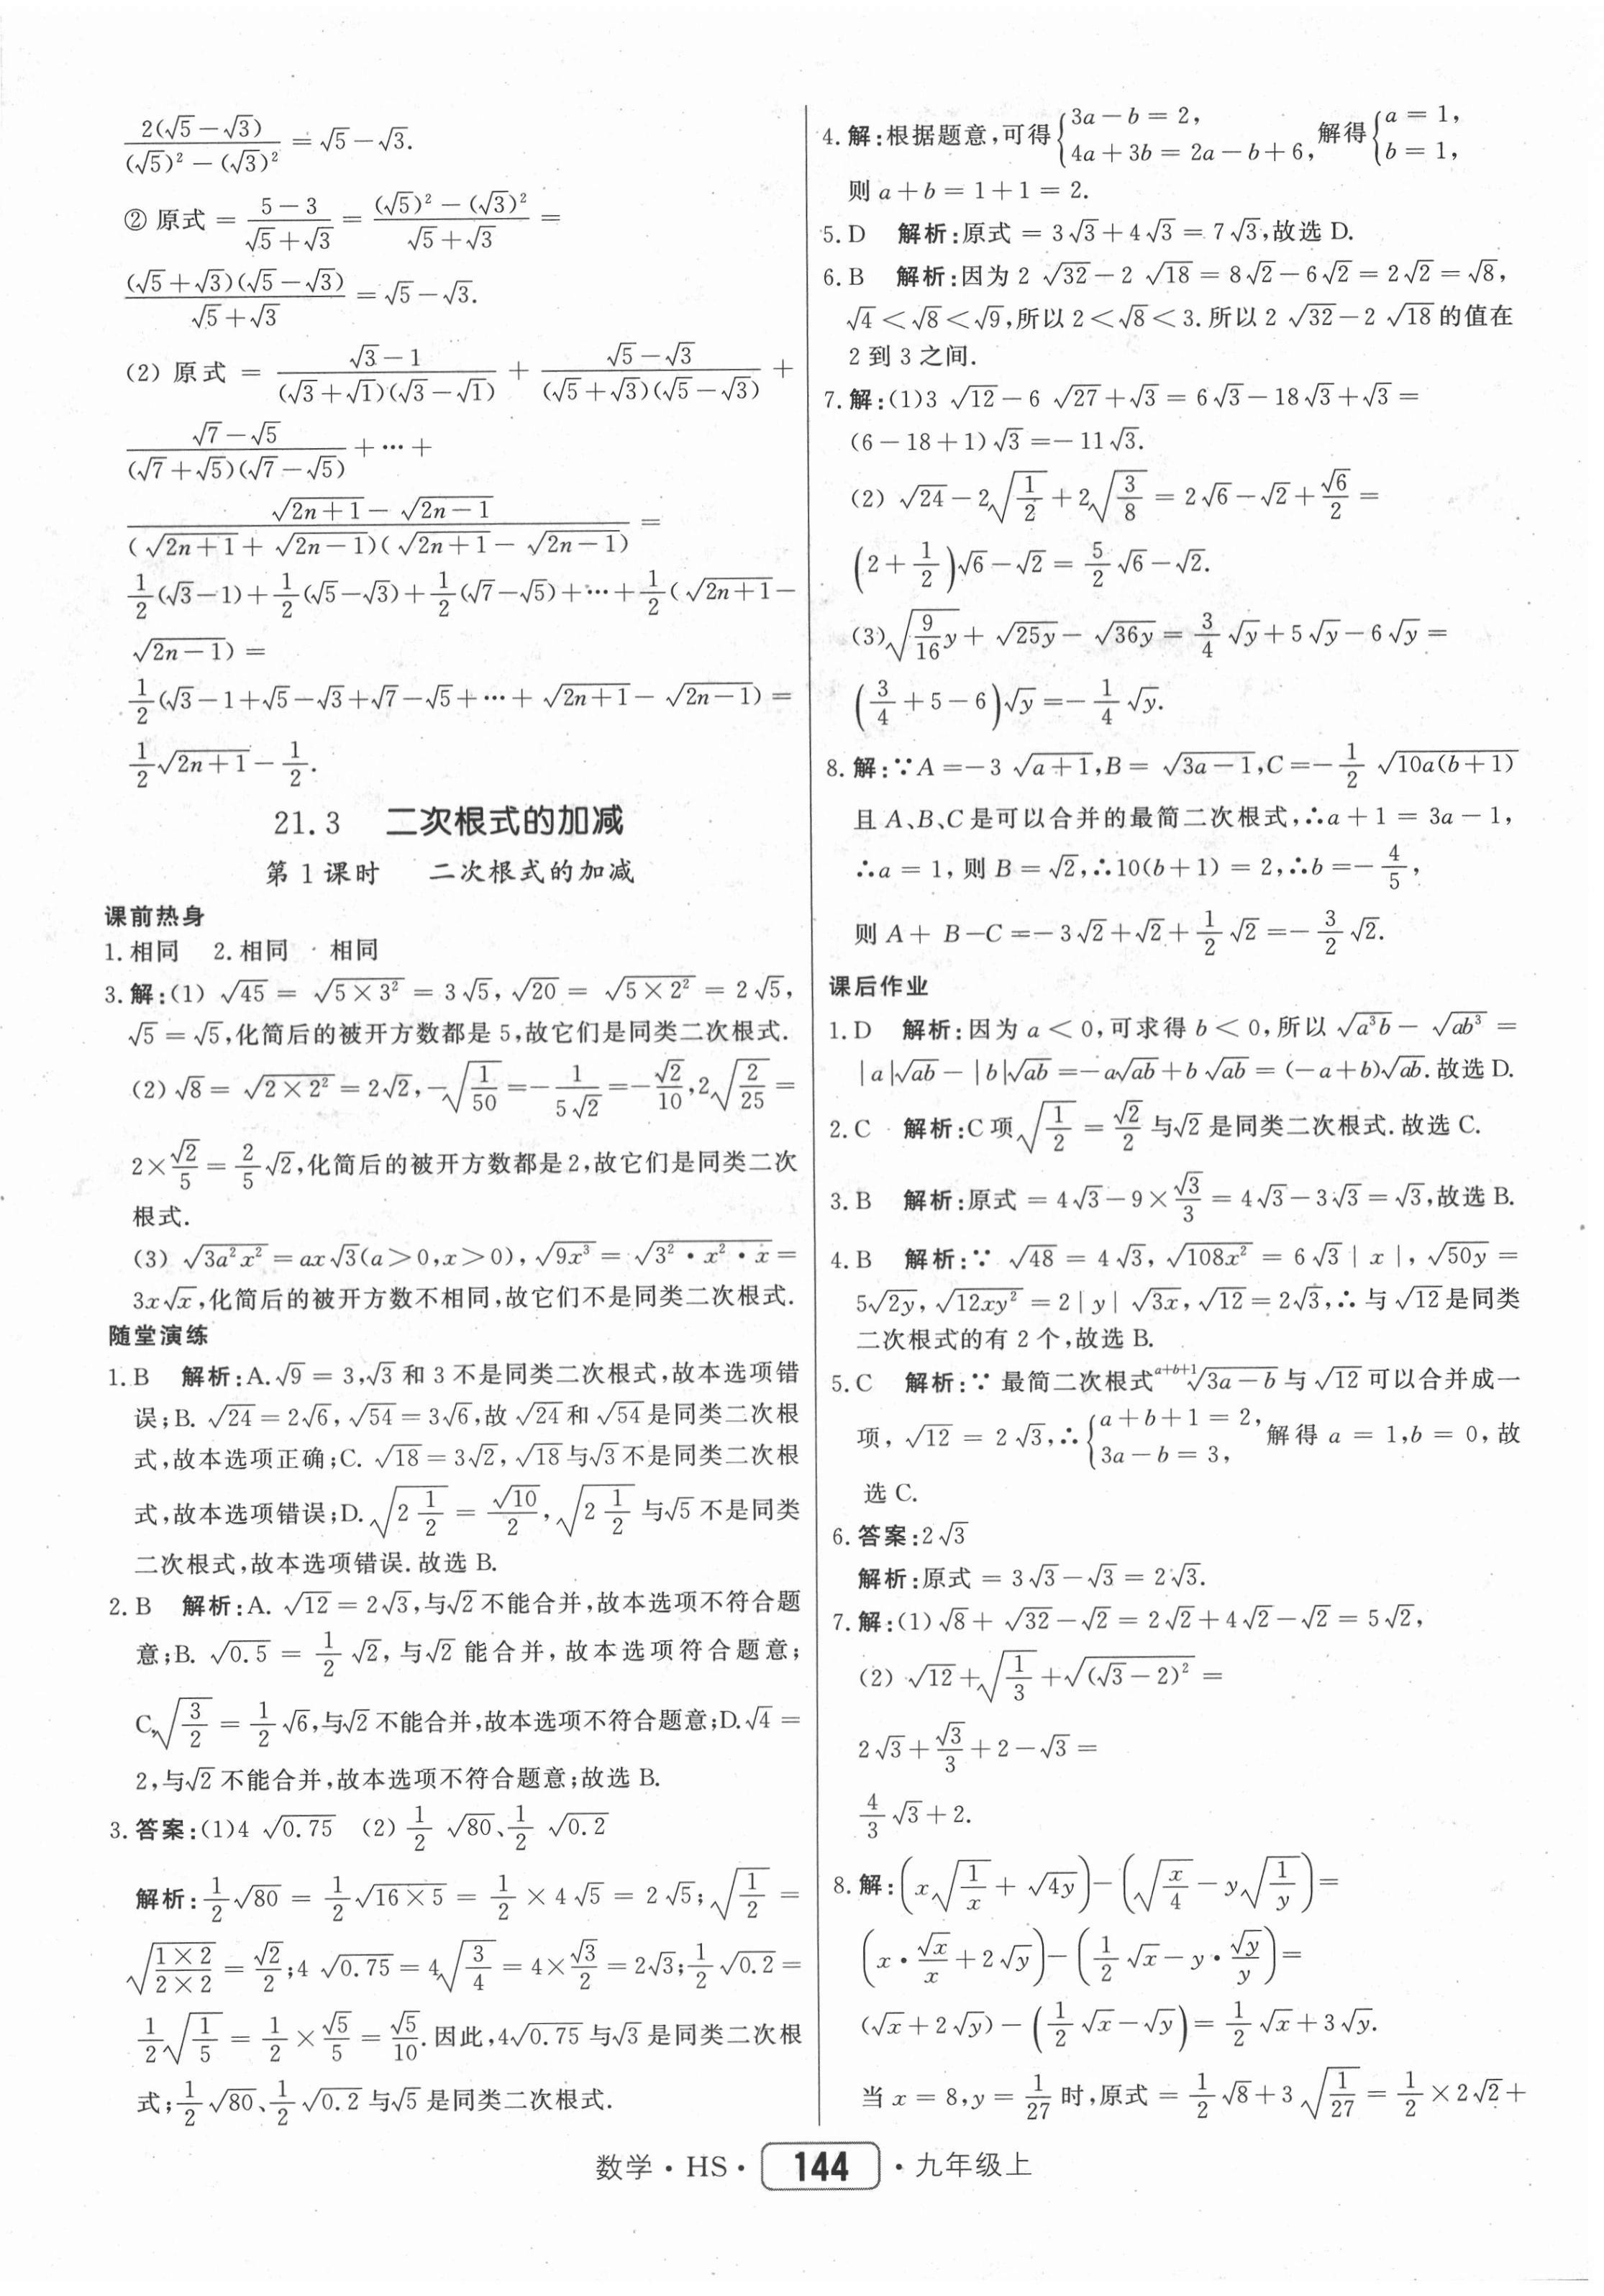 2(√5－√3)/((√5)²－(√3)²) ＝√5－√3.
② 原式 ＝ (5－3)/(√5＋√3) ＝ ((√5)²－(√3)²)/(√5＋√3) ＝
(√5＋√3)(√5－√3)/(√5＋√3) ＝√5－√3.
(2) 原式 ＝ (√3－1)/((√3＋√1)(√3－√1)) ＋ (√5－√3)/((√5＋√3)(√5－√3)) ＋
(√7－√5)/((√7＋√5)(√7－√5)) ＋…＋
(√(2n＋1)－√(2n－1))/((√(2n＋1)＋√(2n－1))(√(2n＋1)－√(2n－1))) ＝
1/2(√3－1)＋1/2(√5－√3)＋1/2(√7－√5)＋…＋1/2(√(2n＋1)－
√(2n－1))＝
1/2(√3－1＋√5－√3＋√7－√5＋…＋√(2n＋1)－√(2n－1))＝
1/2√(2n＋1)－1/2.
21.3 二次根式的加减
第 1 课时 二次根式的加减
课前热身
1.相同 2.相同 相同
3.解:(1) √45＝√(5×3²)＝3√5,√20＝√(5×2²)＝2√5,
√5＝√5,化简后的被开方数都是 5,故它们是同类二次根式.
(2)√8＝√(2×2²)＝2√2,－√(1/50)＝－1/(5√2)＝－√2/10,2√(2/25)＝
2×√2/5＝2/5√2,化简后的被开方数都是2,故它们是同类二次
根式.
(3) √(3a²x²)＝ax√3(a＞0,x＞0),√(9x³)＝√(3²·x²·x)＝
3x√x,化简后的被开方数不相同,故它们不是同类二次根式.
随堂演练
1.B 解析:A.√9＝3,√3和 3 不是同类二次根式,故本选项错
误;B.√24＝2√6,√54＝3√6,故√24和√54是同类二次根
式,故本选项正确;C.√18＝3√2,√18与√3不是同类二次根
式,故本选项错误;D.√(2 1/2)＝√10/2,√(2 1/2)与√5不是同类
二次根式,故本选项错误.故选 B.
2.B 解析:A. √12＝2√3,与√2不能合并,故本选项不符合题
意;B. √0.5＝1/2√2,与√2能合并,故本选项符合题意;
C.√(3/2)＝1/2√6,与√2不能合并,故本选项不符合题意;D.√4＝
2,与√2不能合并,故本选项不符合题意;故选 B.
3.答案:(1)4√0.75 (2)1/2√80、1/2√0.2
解析:1/2√80＝1/2√(16×5)＝1/2×4√5＝2√5;√(1/2)＝
√((1×2)/(2×2))＝√2/2;4√0.75＝4√(3/4)＝4×√3/2＝2√3;1/2√0.2＝
1/2√(1/5)＝1/2×√5/5＝√5/10.因此,4√0.75与√3是同类二次根
式;1/2√80、1/2√0.2与√5是同类二次根式.
4.解:根据题意,可得{3a－b＝2, 4a＋3b＝2a－b＋6, 解得{a＝1, b＝1,
则 a＋b＝1＋1＝2.
5.D 解析:原式＝3√3＋4√3＝7√3,故选 D.
6.B 解析:因为 2√32－2√18＝8√2－6√2＝2√2＝√8,
√4＜√8＜√9,所以 2＜√8＜3.所以 2√32－2√18的值在
2 到 3 之间.
7.解:(1)3√12－6√27＋√3＝6√3－18√3＋√3＝
(6－18＋1)√3＝－11√3.
(2) √24－2√(1/2)＋2√(3/8)＝2√6－√2＋√6/2＝
(2＋1/2)√6－√2＝5/2√6－√2.
(3)√(9/16y)＋√(25y)－√(36y)＝3/4√y＋5√y－6√y＝
(3/4＋5－6)√y＝－1/4√y.
8.解:∵A＝－3√(a＋1),B＝√(3a－1),C＝－1/2√(10a(b＋1))
且 A、B、C是可以合并的最简二次根式,∴a＋1＝3a－1,
∴a＝1,则 B＝√2,∴10(b＋1)＝2,∴b＝－4/5,
则 A＋B－C＝－3√2＋√2＋1/2√2＝－3/2√2.
课后作业
1.D 解析:因为 a＜0,可求得 b＜0,所以√(a³b)－√(ab³)＝
|a|√ab－|b|√ab＝－a√ab＋b√ab＝(－a＋b)√ab.故选 D.
2.C 解析:C项√(1/2)＝√2/2与√2是同类二次根式.故选 C.
3.B 解析:原式＝4√3－9×√3/3＝4√3－3√3＝√3,故选 B.
4.B 解析:∵√48＝4√3,√(108x²)＝6√3|x|,√(50y)＝
5√(2y),√(12xy²)＝2|y|√(3x),√12＝2√3,∴与√12是同类
二次根式的有 2 个,故选 B.
5.C 解析:∵最简二次根式ᵃ⁺ᵇ⁺¹√(3a－b)与√12可以合并成一
项,√12＝2√3,∴{a＋b＋1＝2, 3a－b＝3, 解得 a＝1,b＝0,故
选 C.
6.答案:2√3
解析:原式＝3√3－√3＝2√3.
7.解:(1)√8＋√32－√2＝2√2＋4√2－√2＝5√2,
(2) √12＋√(1/3)＋√((√3－2)²)＝
2√3＋√3/3＋2－√3＝
4/3√3＋2.
8.解:(x√(1/x)＋√(4y))－(√(x/4)－y√(1/y))＝
(x·√x/x＋2√y)－(1/2√x－y·√y/y)＝
(√x＋2√y)－(1/2√x－√y)＝1/2√x＋3√y.
当 x＝8,y＝1/27时,原式＝1/2√8＋3√(1/27)＝1/2×2√2＋
数学·HS· 144 ·九年级上